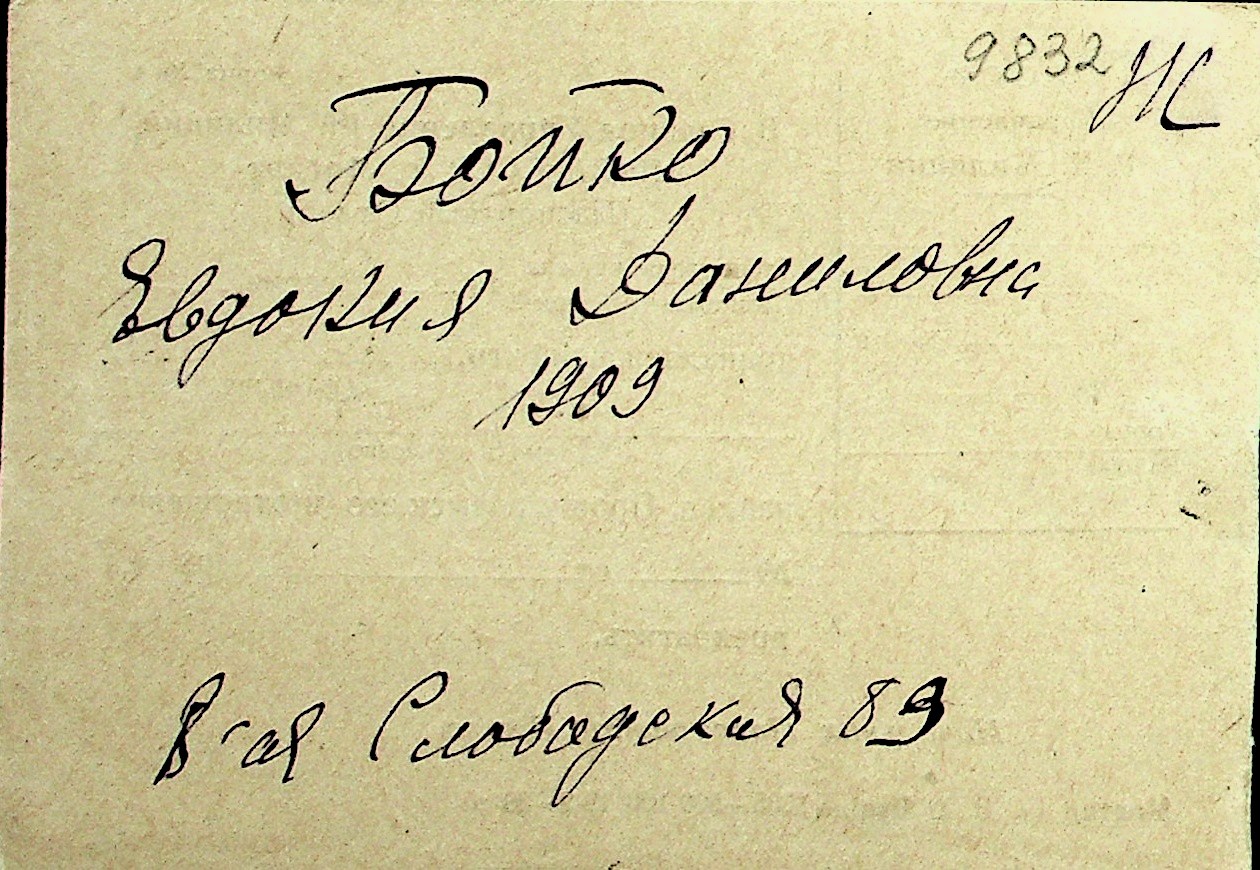 9832 Ж
Бойко
Евдокия Даниловна
1909
В-ая Слободская 89